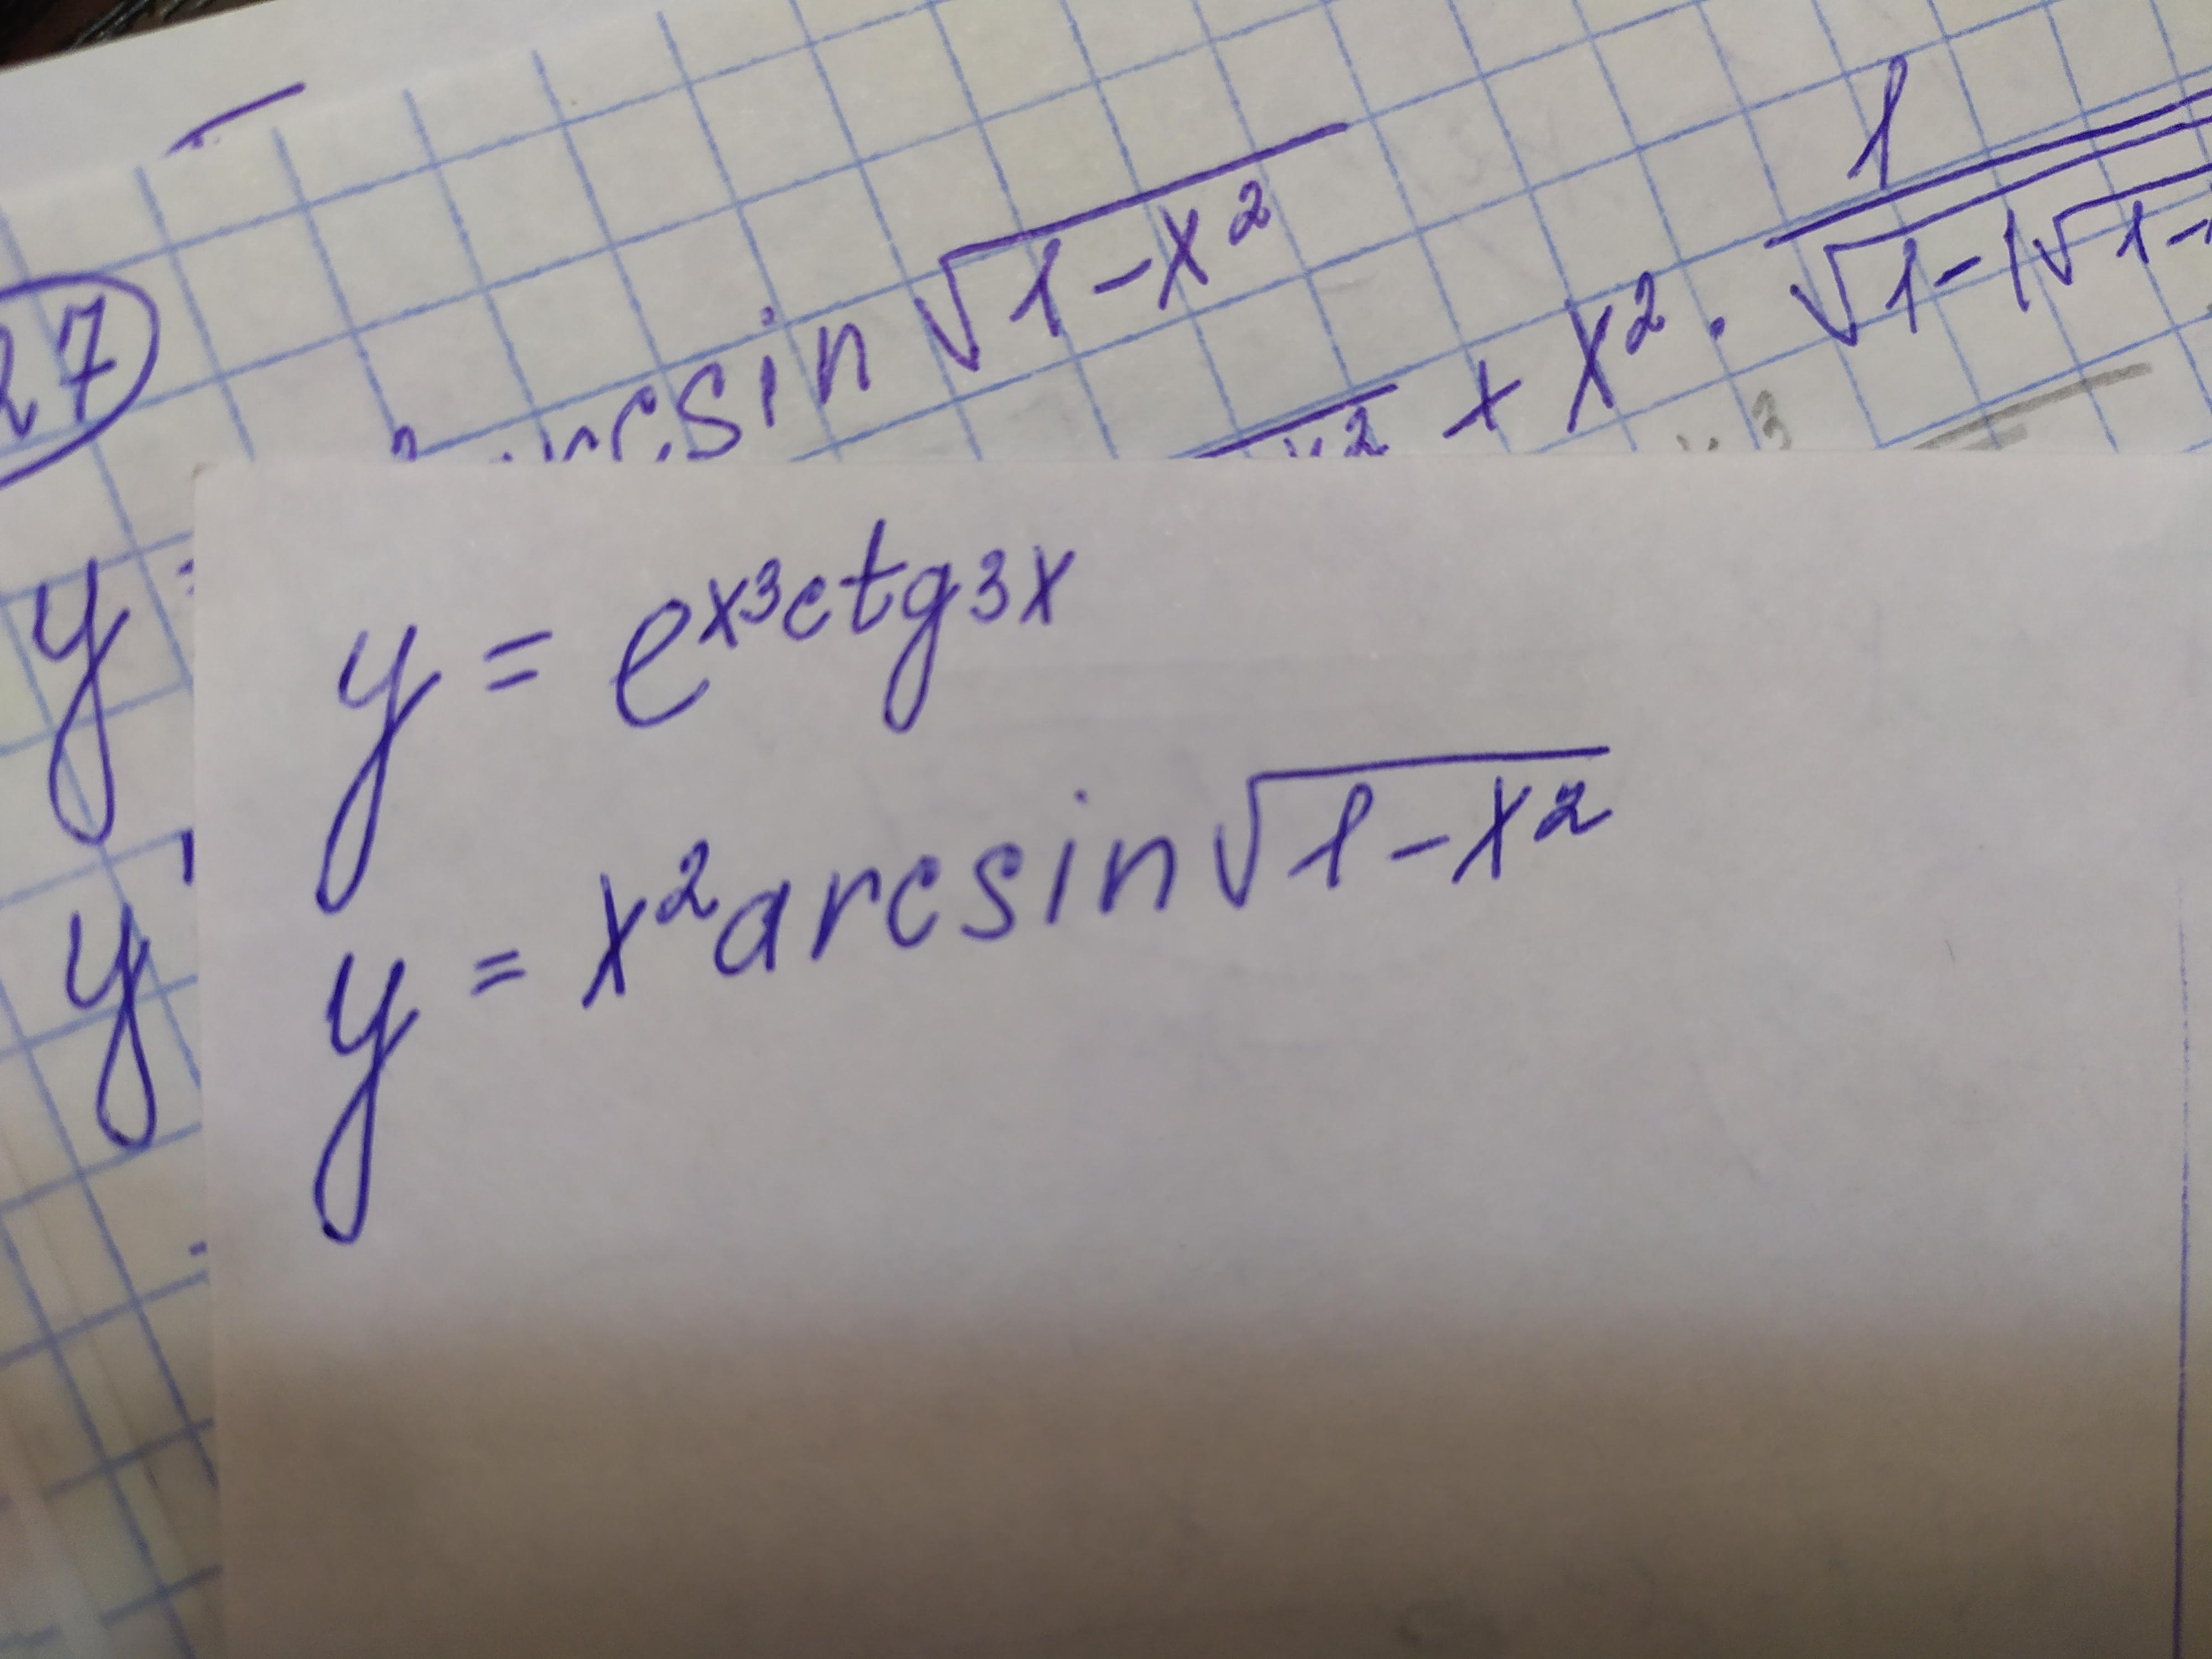 27
arcsin √1-x²
+ x² · 1/√1-(√1-
y =
y = e^x³ctg3x
y = x²arcsin√1-x²
y'